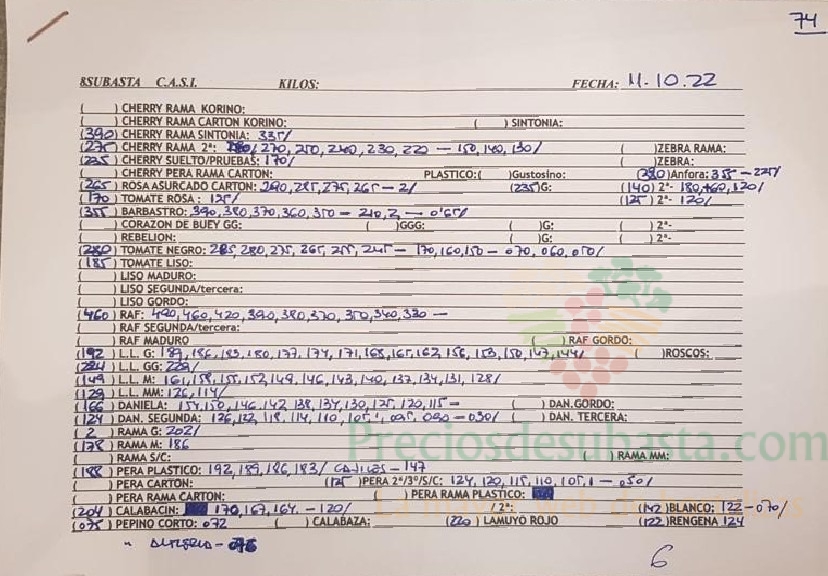 74
8SUBASTA C.A.S.I. KILOS: FECHA: 11-10.22
( ) CHERRY RAMA KORINO:
( ) CHERRY RAMA CARTON KORINO: ( ) SINTONIA:
(390) CHERRY RAMA SINTONIA: 335/
(275) CHERRY RAMA 2ª: 270, 250, 240, 230, 220 - 150, 140, 130/ ( )ZEBRA RAMA:
(225) CHERRY SUELTO/PRUEBAS: 170/ ( )ZEBRA:
( ) CHERRY PERA RAMA CARTON: PLASTICO:( )Gustosino: (380)Anfora: 355 - 225/
(265) ROSA ASURCADO CARTON: 290, 285, 275, 265 - 2/ (235)G: (140) 2ª- 180, 160, 120/
(170) TOMATE ROSA: 125/ (125) 2ª- 120/
(355) BARBASTRO: 390, 380, 370, 360, 350 - 210, 2, - 0'65/
( ) CORAZON DE BUEY GG: ( )GGG: ( )G: ( ) 2ª-
( ) REBELION: ( )G: ( ) 2ª-
(280) TOMATE NEGRO: 285, 280, 275, 265, 255, 245 - 170, 160, 150 - 070, 060, 050/
(185) TOMATE LISO:
( ) LISO MADURO:
( ) LISO SEGUNDA/tercera:
( ) LISO GORDO:
(460) RAF: 490, 460, 420, 390, 380, 370, 350, 340, 330 -
( ) RAF SEGUNDA/tercera:
( ) RAF MADURO ( ) RAF GORDO:
(192) L.L. G: 189, 186, 183, 180, 177, 174, 171, 168, 165, 162, 156, 153, 150, 147, 144/ ( )ROSCOS:
(224) L.L. GG: 229/
(149) L.L. M: 161, 158, 155, 152, 149, 146, 143, 140, 137, 134, 131, 128/
(129) L.L. MM: 126, 114/
(166) DANIELA: 154, 150, 146, 142, 138, 134, 130, 125, 120, 115 - ( ) DAN.GORDO:
(124) DAN. SEGUNDA: 126, 122, 118, 114, 110, 105, 1, 095, 090 - 050/ ( ) DAN. TERCERA:
( 2 ) RAMA G: 202/
(178) RAMA M: 186
( ) RAMA S/C: ( ) RAMA MM:
(188) PERA PLASTICO: 192, 189, 186, 183/ - 147
( ) PERA CARTON: (125 )PERA 2ª/3ª/S/C: 124, 120, 115, 110, 105, 1 - 050/
( ) PERA RAMA CARTON: ( ) PERA RAMA PLASTICO:
(204) CALABACIN: 170, 167, 164, - 120/ / 2ª: (142) BLANCO: 122 - 070/
(075) PEPINO CORTO: 072 ( ) CALABAZA: (220) LAMUYO ROJO (122)RENGENA 124
" -
6
Preciosdesubasta.com
La mayor web de